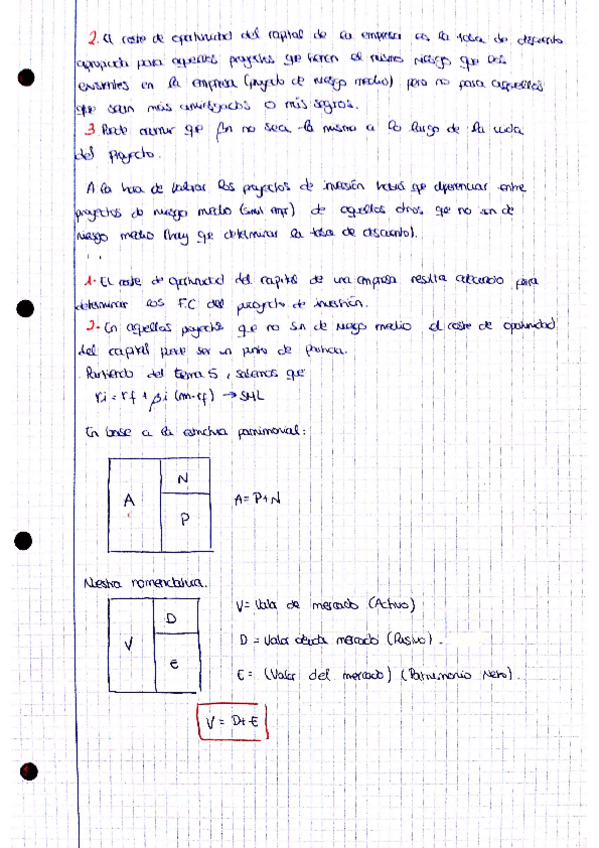 2. El coste de oportunidad del capital de la empresa es la tasa de descuento
apropiada para aquellos proyectos que tienen el mismo riesgo que los
existentes en la empresa (proyecto de riesgo medio) pero no para aquellos
que sean más arriesgados o más seguros.
3. Puede ocurrir que βn no sea la misma a lo largo de la vida
del proyecto.
A la hora de valorar los proyectos de inversión habrá que diferenciar entre
proyectos de riesgo medio de aquellos otros que no son de
riesgo medio (hay que determinar la tasa de descuento).
1- El coste de oportunidad del capital de una empresa resulta adecuado para
determinar los FC del proyecto de inversión.
2- En aquellos proyectos que no son de riesgo medio el coste de oportunidad
del capital puede ser un punto de
Partiendo del tema 5, sabemos que
ri = rf + βi (rm-rf) → SML
En base a la estructura patrimonial:
A
N
P
A = P+N
Nuestra nomenclatura.
V
D
E
V = Valor de mercado (Activo)
D = Valor deuda mercado (Pasivo).
E = (Valor del mercado) (Patrimonio Neto).
V = D+E